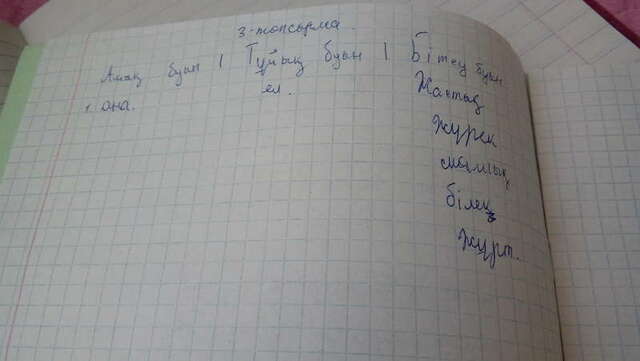 3-тапсырма.
Ашық буын | Тұйық буын | Бітеу буын
ана. ел. Жантық
жүрек
мәмлық
білек
жұрт.